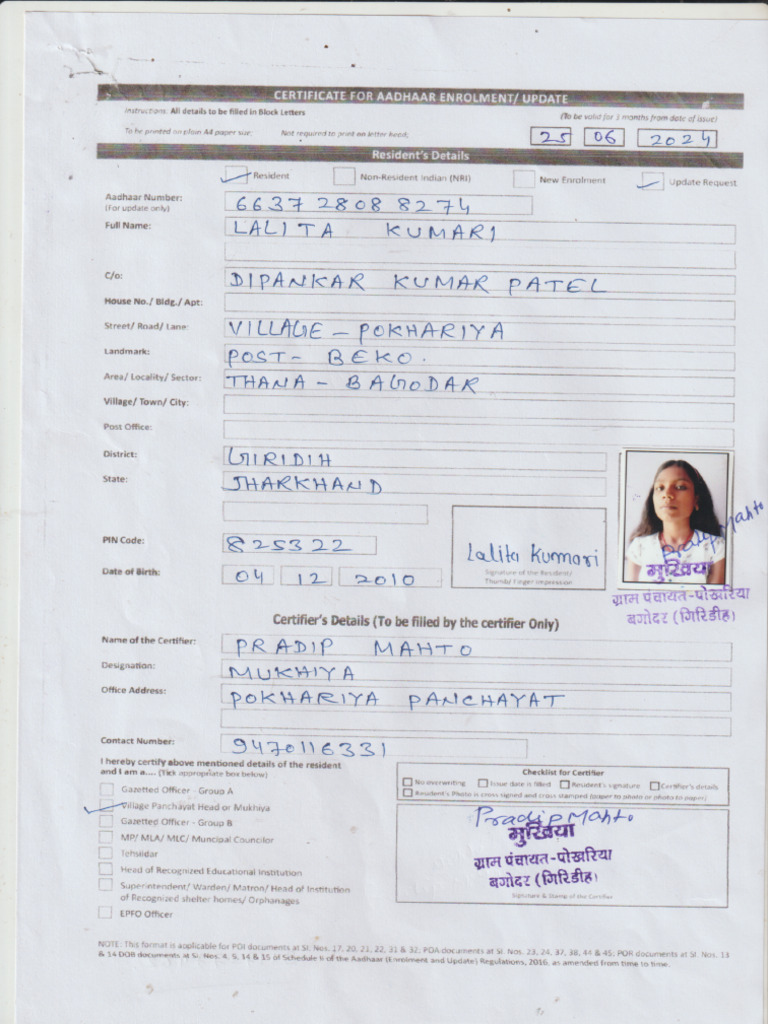 CERTIFICATE FOR AADHAAR ENROLMENT/ UPDATE
Instructions: All details to be filled in Block Letters
(To be valid for 3 months from date of issue)
To be printed on plain A4 paper size; Not required to print on letter head;
25 06 2024
Resident's Details
Resident Non-Resident Indian (NRI) New Enrolment Update Request
Aadhaar Number: 6637 2808 8274
(For update only)
Full Name: LALITA KUMARI
C/o: DIPANKAR KUMAR PATEL
House No./ Bldg./ Apt:
Street/ Road/ Lane: VILLAGE - POKHARIYA
Landmark: POST - BEKO.
Area/ Locality/ Sector: THANA - BAGODAR
Village/ Town/ City:
Post Office:
District: GIRIDIH
State: JHARKHAND
PIN Code: 825322
Lalita Kumari
Signature of the Resident/
Thumb/ Finger Impression
Date of Birth: 04 12 2010
Pradip Mahto
मुखिया
ग्राम पंचायत-पोखरिया
बगोदर (गिरिडीह)
Certifier's Details (To be filled by the certifier Only)
Name of the Certifier: PRADIP MAHTO
Designation: MUKHIYA
Office Address: POKHARIYA PANCHAYAT
Contact Number: 9470116331
I hereby certify above mentioned details of the resident
and I am a.... (Tick appropriate box below)
Gazetted Officer - Group A
Village Panchayat Head or Mukhiya
Gazetted Officer - Group B
MP/ MLA/ MLC/ Muncipal Councilor
Tehsildar
Head of Recognized Educational Institution
Superintendent/ Warden/ Matron/ Head of Institution
of Recognized shelter homes/ Orphanages
EPFO Officer
Checklist for Certifier
No overwriting Issue date is filled Resident's signature Certifier's details
Resident's Photo is cross signed and cross stamped (paper to photo or photo to paper)
Pradip Mahto
मुखिया
ग्राम पंचायत-पोखरिया
बगोदर (गिरिडीह)
Signature & Stamp of the Certifier
NOTE: This format is applicable for POI documents at Sl. Nos. 17, 20, 21, 22, 31 & 32; POA documents at Sl. Nos. 23, 24, 37, 38, 44 & 45; POR documents at Sl. Nos. 13
& 14 DOB documents at Sl. Nos. 4, 9, 14 & 15 of Schedule II of the Aadhaar (Enrolment and Update) Regulations, 2016, as amended from time to time.